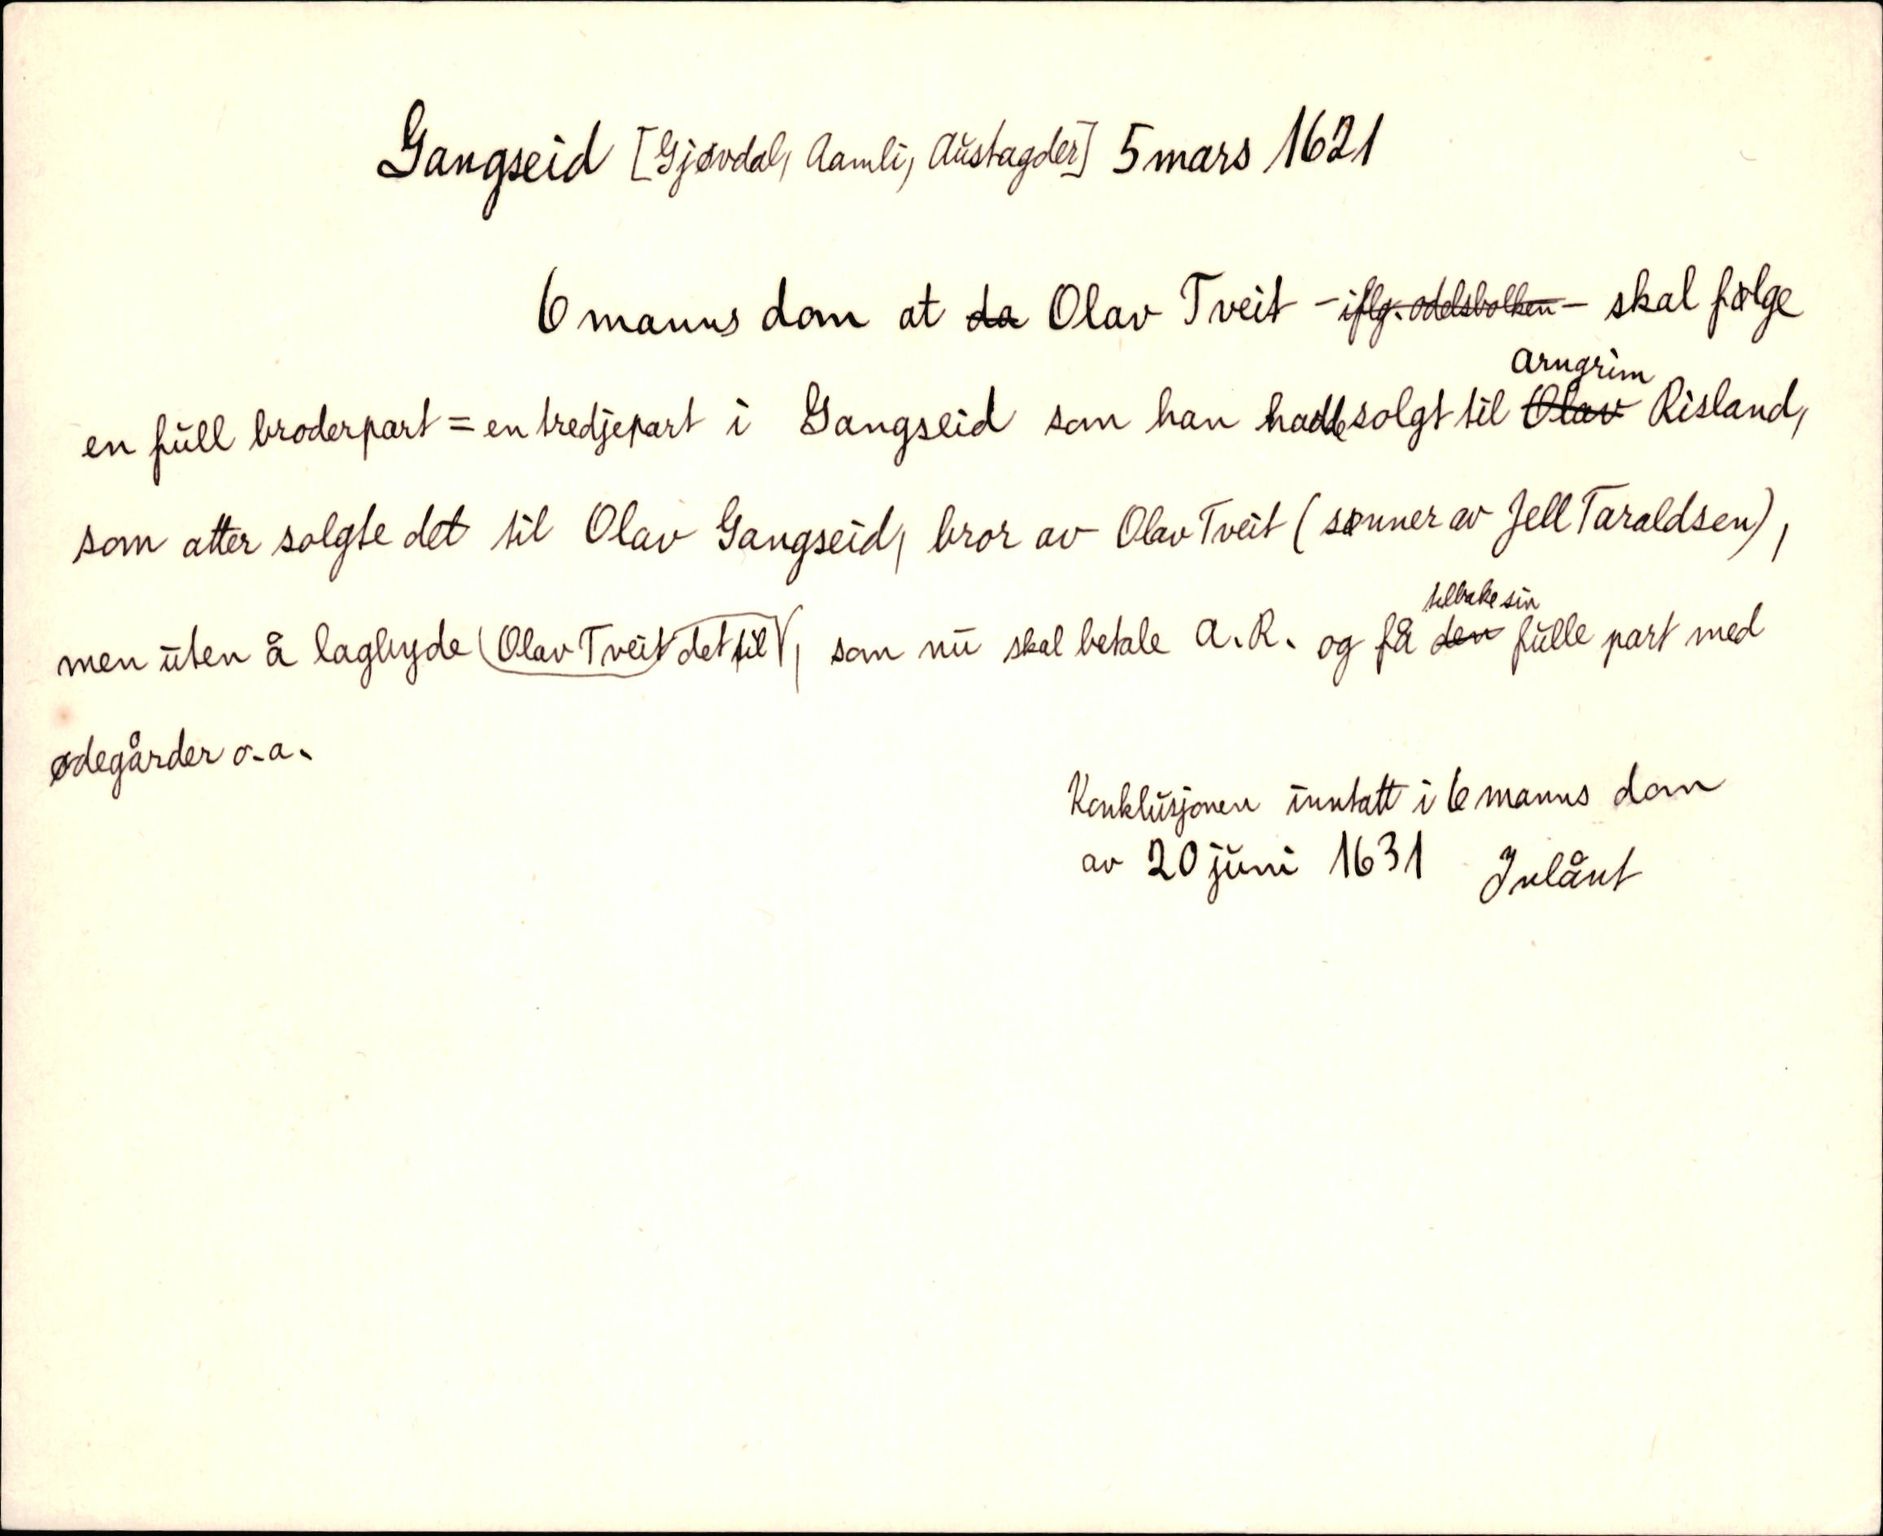 Gangseid [Gjøvdal, Aamli, Austagder] 5 mars 1621
6 manns dom at da Olav Tveit - iflg. odelsbolken - skal følge
Arngrim
en full broderpart = en tredjepart i Gangseid som han hadde solgt til Olav Risland,
som atter solgte det til Olav Gangseid, bror av Olav Tveit (sønner av Jell Taraldsen),
tilbake sin
men uten å lagbyde Olav Tveit det til, som nu skal betale A. R. og få den fulle part med
ødegårder o. a.
Konklusjonen inntatt i 6 manns dom
av 20 juni 1631 Innlånt